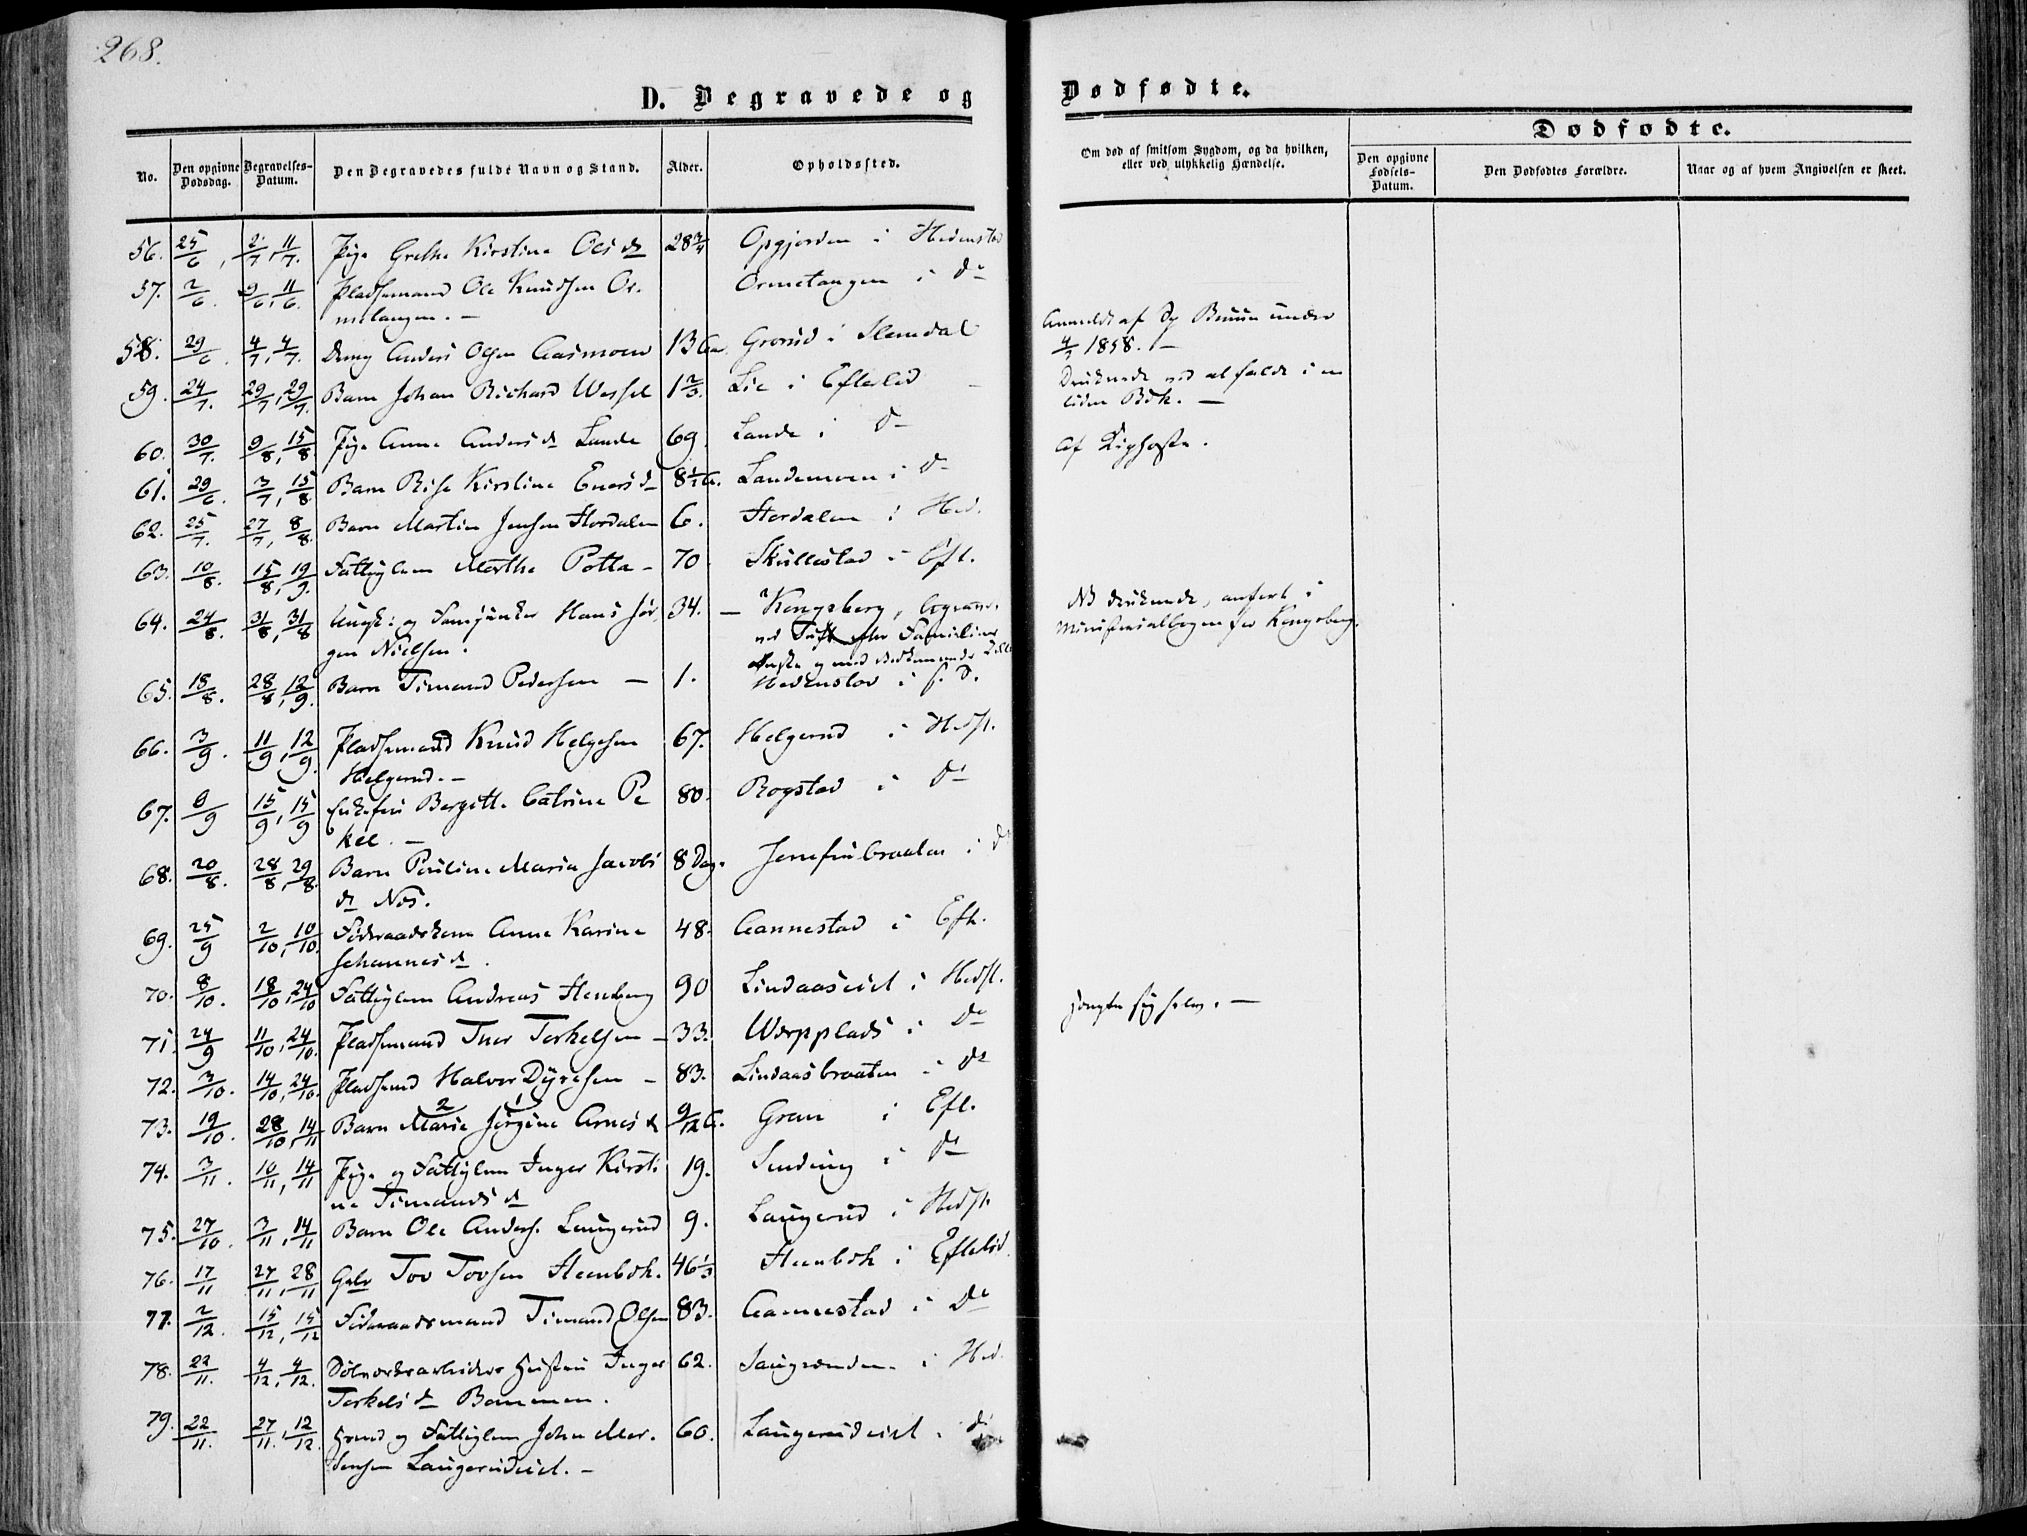 268.
D. Begravede og
Dødfødte.
No.
Den opgivne Dødsdag.
Begravelses-Datum.
Den Begravedes fulde Navn og Stand.
Alder.
Opholdssted.
Om død af smitsom Sygdom, og da hvilken,
eller ved ulykkelig Hændelse.
Dødfødte.
Den opgivne Fødsels-Datum.
Den Dødfødtes Forældre.
Naar og af hvem Angivelsen er skeet.
56. 25/6, 2/7, 11/7. Pige Grethe Kirstine Olsd 28 3/4 Opgjorden i Hedenstad
57. 2/6. 9/6, 11/6 Pladsemand Ole Knudsen Or- Ormetangen i Do
metangen. —
58. 29/6. 4/7, 4/7. Dreng Anders Olsen Aasmoen 13 Aa. Grosvd i Slemdal
Anmeldt af Sp Bruun under
4/7 1858. —
59. 24/7. 29/7, 29/7. Barn Johan Richard Wessel 1 2/3. Lie i Eftelød
Druknede ved at falde i en
liden Bæk. —
60. 30/7. 9/8, 15/8 Pige Anne Andersd Lande 69. Lande i Do
Af Kighoste.
61. 29/6. 3/7, 15/8 Barn Rise Kirstine Enersd 8 1/2 A. Landemoen i Do
62. 25/7. 27/7, 8/8. Barn Martin Jensen Stordalen 6. Stordalen i Hed.
63. 10/8. 15/8, 19/9. Fattiglem Marthe Potta — 70 Skullestad i Eft.
64. 24/8. 31/8, 31/8 Ungk: og Hans Jør- 34. — Kongsberg,
gen Nielsen.
NB druknede, anført i
Ministerialbogen for Kongsberg.
65. 18/8. 28/8, 12/9. Barn Timand Pedersen — 1. Hedenstad i s. D.
66. 3/9. 11/9, 12/9. Pladsemand Knud Helgesen 67. Helgerud i Hedst.
Helgerud. —
67. 6/9 15/9, 15/9 Enkefru Bergitte Catrine Pe 80. Rogstad i Do
kel. —
68. 20/8. 28/8, 29/8. Barn Pauline Maria Jacobs 8 Dag. i Do
d Nøs.
69. 25/9 2/10, 10/10 Føderaadskone Anne Karine 48. Aannestad i Eft.
Johannesd.
70. 8/10. 18/10, 24/10 Fattiglem Andreas Stenberg 90 Lindaaseiet i Hedst.
71. 24/9 11/10, 24/10. Pladsemand Iver Torkelsen — 33. Werpplads i Do
hængte sig selv. —
72. 3/10. 14/10, 24/10. Pladsemd Halvor Dyresen — 83. Lindaasbraaten i Do
73. 19/10. 28/10, 14/11 Barn Marie Jørgine Arnesd 9/12 A. Gran i Eft.
74. 3/11. 10/11, 14/11 Pige og Fattiglem Inger Kirsti 19. Sending i Do
ne Timandsd
75. 27/10. 3/11, 14/11 Barn Ole Anders. Laugerud 9. Laugerud i Hedst.
76. 17/11 27/11, 28/11 Gdbr Tov Tovsen Steenbæk. 46 1/3 Steenbæk i Eftelød.
77. 2/12. 15/12, 15/12 Føderaadsmand Timand Olsen 83. Aannestad i Do
78. 22/11. 4/12, 4/12. Sølvverksarbeiders Hustru Inger 62. Saugrenden i Hed.
Torkelsd Bommen.
79. 22/11. 27/11, 12/12. Hmd og Fattiglem John Mor- 60. Laugerudeiet i Do
tensen Laugerudeiet. —